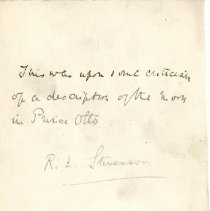 This was upon some criticism
of a description of the moon
in Prince Otto
R. L. Stevenson